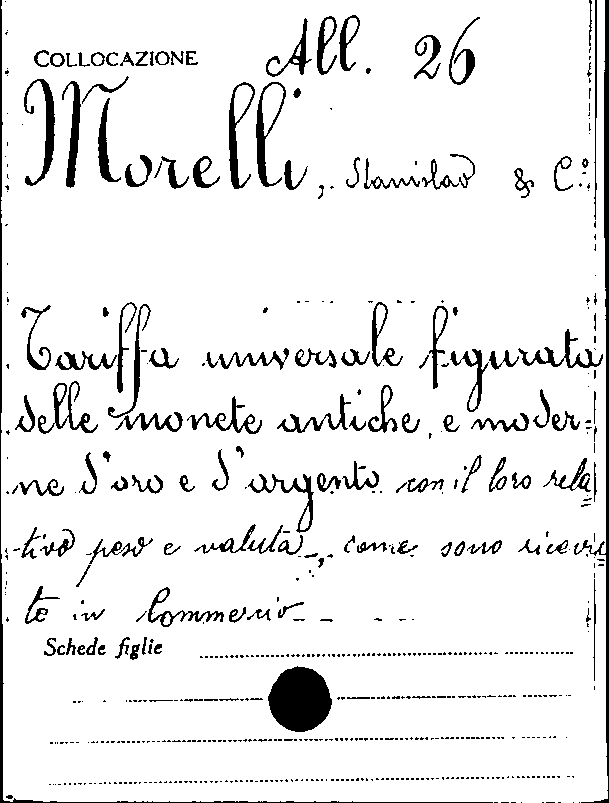 COLLOCAZIONE All. 26
Morelli, Stanislao & C.º
Tariffa universale figurata
delle monete antiche, e moder=
ne d'oro e d'argento con il loro rela
=
tivo peso e valuta, come sono ricevu
=
te in Commercio
Schede figlie